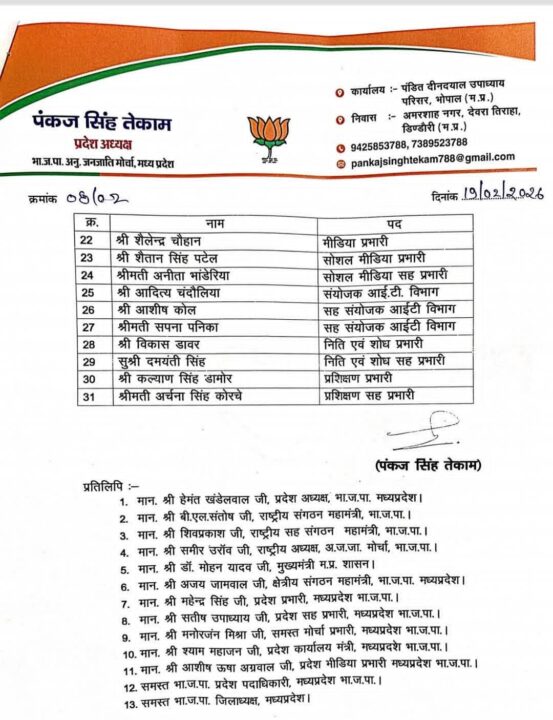 पंकज सिंह तेकाम
प्रदेश अध्यक्ष
भा.ज.पा. अनु. जनजाति मोर्चा, मध्य प्रदेश
कार्यालय :- पंडित दीनदयाल उपाध्याय
परिसर, भोपाल (म.प्र.)
निवास :- अमरशाह नगर, देवरा तिराहा,
डिण्डौरी (म.प्र.)
9425853788, 7389523788
pankajsinghtekam788@gmail.com
क्रमांक 08/02
दिनांक 19/02/2026
क्र. नाम पद
22 श्री शैलेन्द्र चौहान मीडिया प्रभारी
23 श्री शैतान सिंह पटेल सोशल मीडिया प्रभारी
24 श्रीमती अनीता भांडेरिया सोशल मीडिया सह प्रभारी
25 श्री आदित्य चंदौलिया संयोजक आई.टी. विभाग
26 श्री आशीष कोल सह संयोजक आईटी विभाग
27 श्रीमती सपना पनिका सह संयोजक आईटी विभाग
28 श्री विकास डावर निति एवं शोध प्रभारी
29 सुश्री दमयंती सिंह निति एवं शोध सह प्रभारी
30 श्री कल्याण सिंह डामोर प्रशिक्षण प्रभारी
31 श्रीमती अर्चना सिंह कोरचे प्रशिक्षण सह प्रभारी
(पंकज सिंह तेकाम)
प्रतिलिपि :-
1. मान. श्री हेमंत खंडेलवाल जी, प्रदेश अध्यक्ष, भा.ज.पा. मध्यप्रदेश।
2. मान. श्री बी.एल.संतोष जी, राष्ट्रीय संगठन महामंत्री, भा.ज.पा.।
3. मान. श्री शिवप्रकाश जी, राष्ट्रीय सह संगठन महामंत्री, भा.ज.पा.।
4. मान. श्री समीर उरॉव जी, राष्ट्रीय अध्यक्ष, अ.ज.जा. मोर्चा, भा.ज.पा.।
5. मान. श्री डॉ. मोहन यादव जी, मुख्यमंत्री म.प्र. शासन।
6. मान. श्री अजय जामवाल जी, क्षेत्रीय संगठन महामंत्री, भा.ज.पा. मध्यप्रदेश।
7. मान. श्री महेन्द्र सिंह जी, प्रदेश प्रभारी, मध्यप्रदेश भा.ज.पा.।
8. मान. श्री सतीष उपाध्याय जी, प्रदेश सह प्रभारी, मध्यप्रदेश भा.ज.पा.।
9. मान. श्री मनोरजंन मिश्रा जी, समस्त मोर्चा प्रभारी, मध्यप्रदेश भा.ज.पा.।
10. मान. श्री श्याम महाजन जी, प्रदेश कार्यालय मंत्री, मध्यप्रदेश भा.ज.पा.।
11. मान. श्री आशीष ऊषा अग्रवाल जी, प्रदेश मीडिया प्रभारी मध्यप्रदेश भा.ज.पा.।
12. समस्त भा.ज.पा. प्रदेश पदाधिकारी, मध्यप्रदेश भा.ज.पा.।
13. समस्त भा.ज.पा. जिलाध्यक्ष, मध्यप्रदेश।